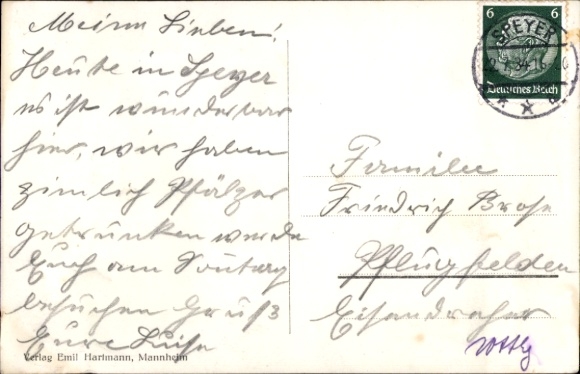 Meine Lieben!
Heute in Speyer
es ist wunderbar
hier, wir haben
zimlich Pfälzer
getrunken werde
Euch am Sontag
besuchen Gruß
Eure Luise
Verlag Emil Hartmann, Mannheim
6 6
Deutsches Reich
SPEYER
Familie
Friedrich Brose
Pflugfelden